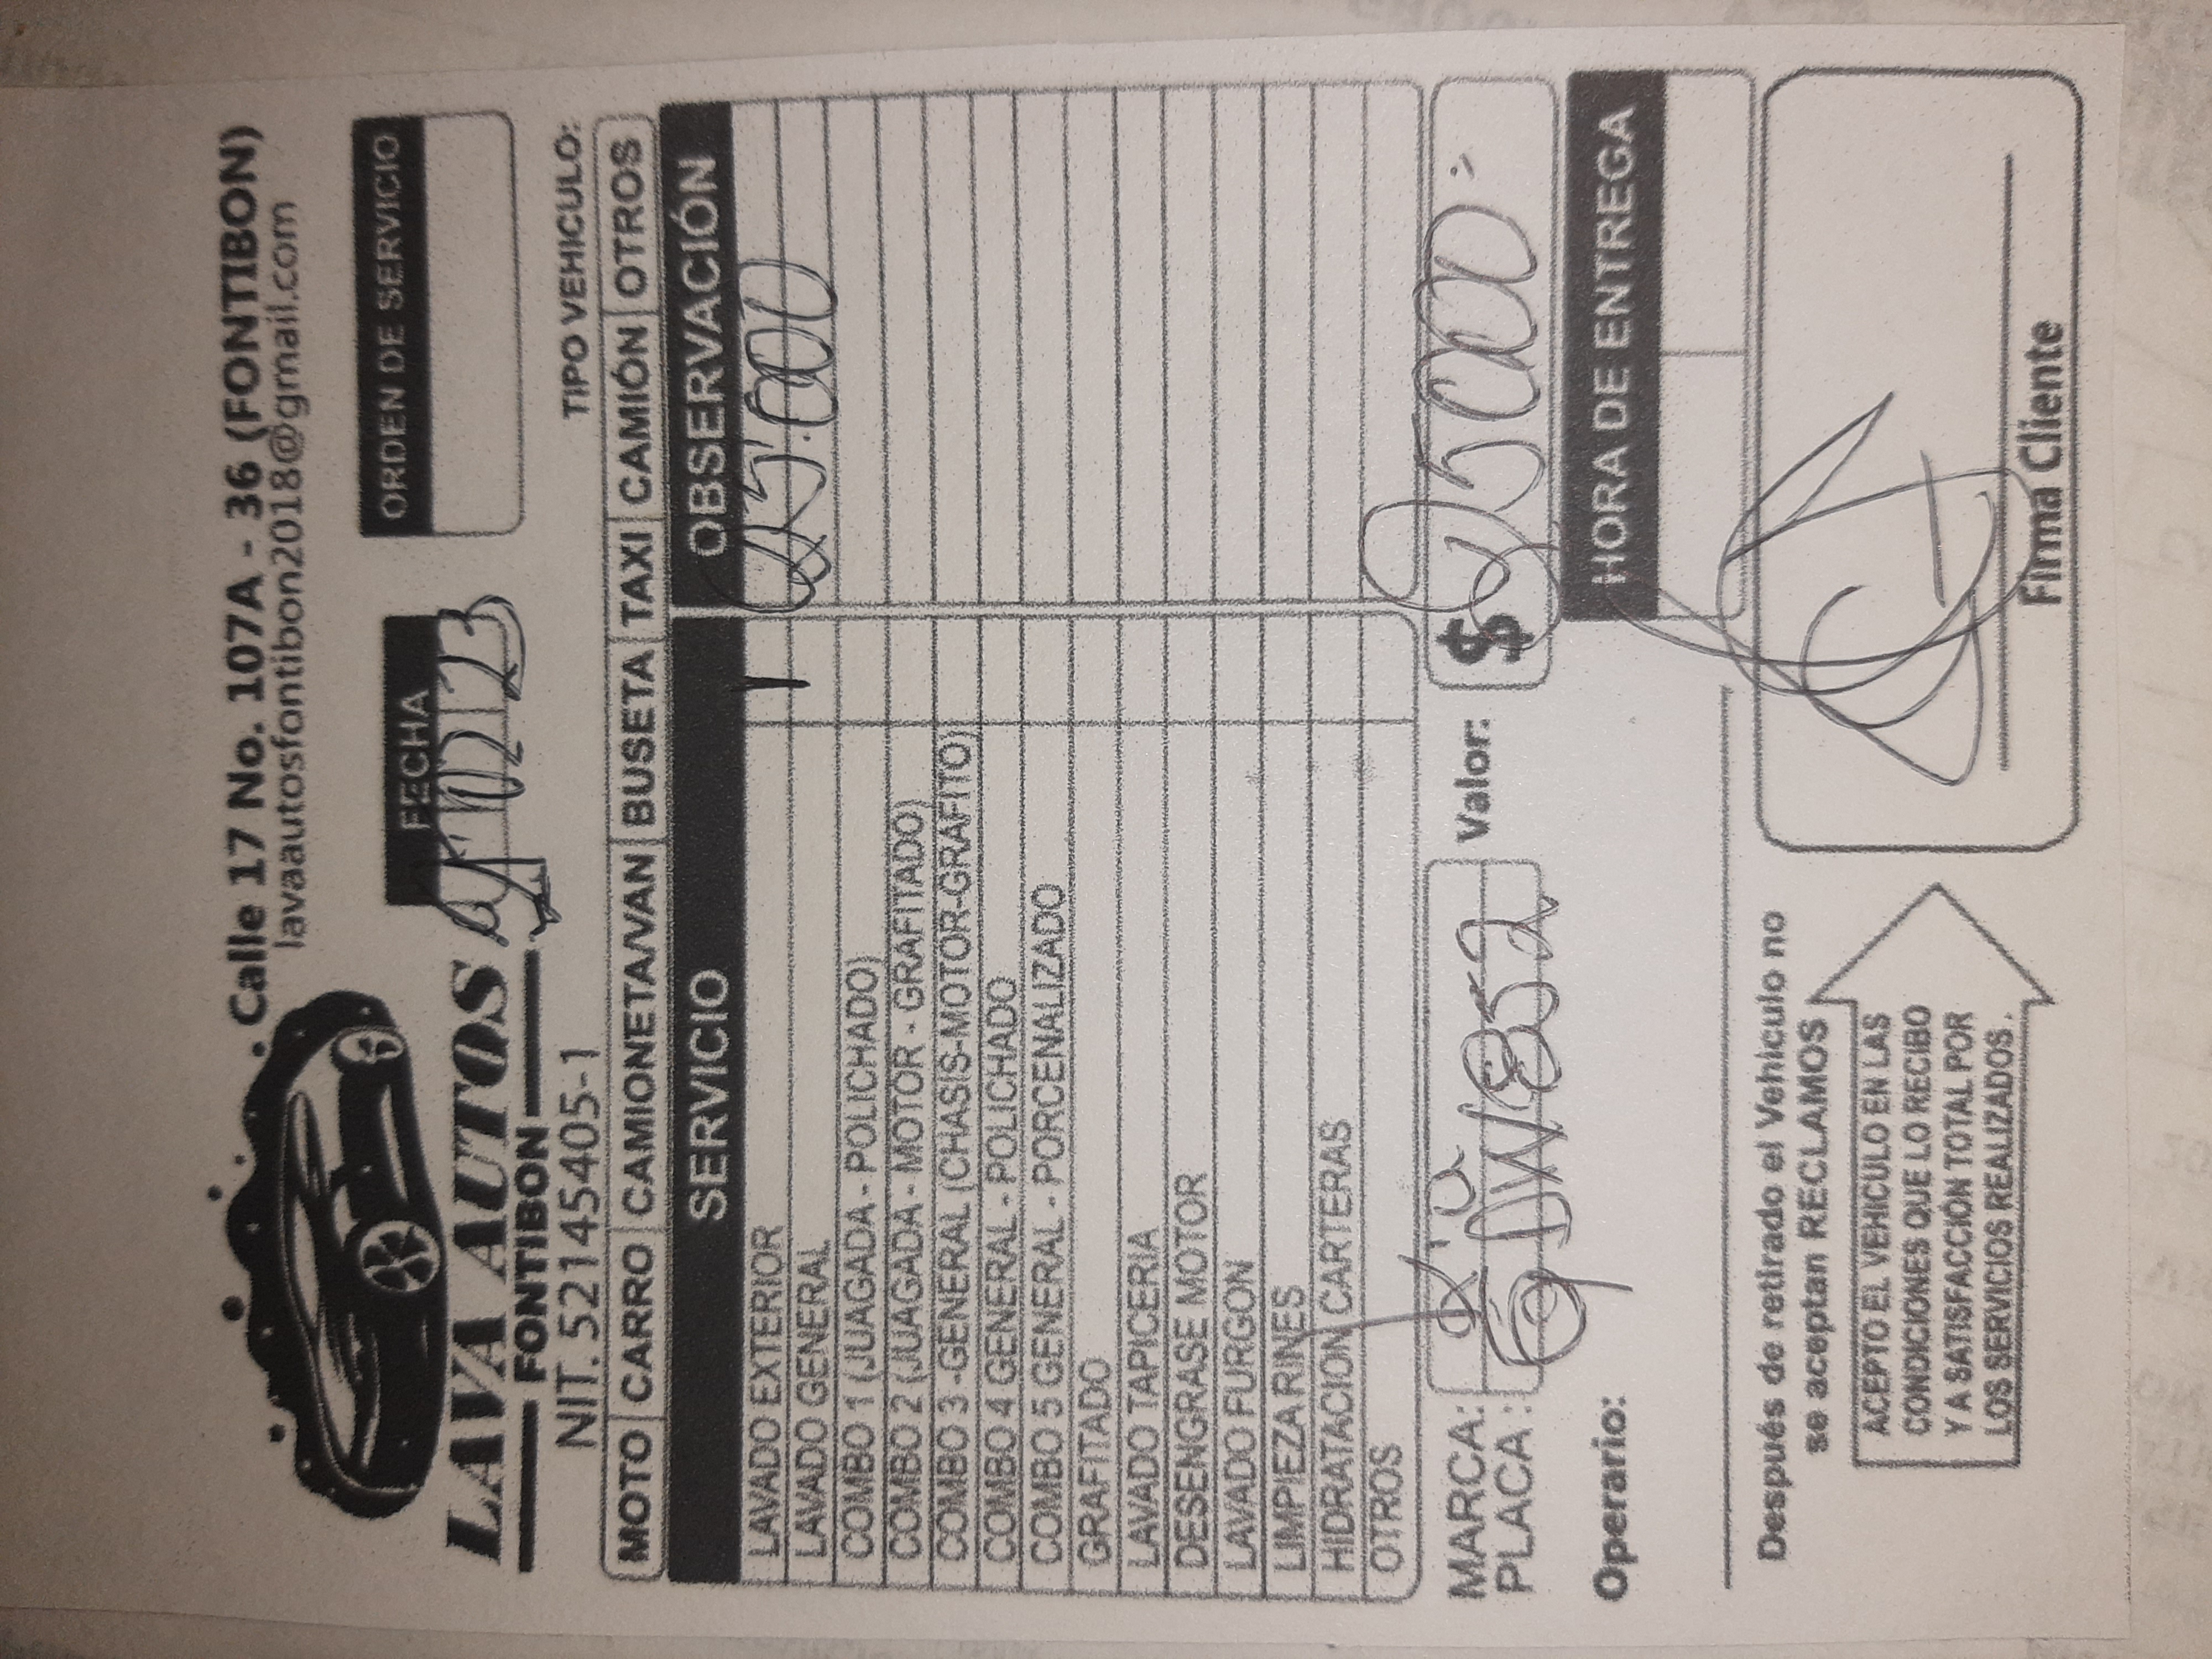 Calle 17 No. 107A - 36 (FONTIBON)
lavaautosfontibon2018@gmail.com
LAVA AUTOS
FONTIBON
NIT. 52145405-1
FECHA
02 23
ORDEN DE SERVICIO
TIPO VEHICULO:
MOTO CARRO CAMIONETA/VAN BUSETA TAXI CAMIÓN OTROS
SERVICIO OBSERVACIÓN
LAVADO EXTERIOR
LAVADO GENERAL 25.000
COMBO 1 (JUAGADA - POLICHADO)
COMBO 2 (JUAGADA - MOTOR - GRAFITADO)
COMBO 3 -GENERAL (CHASIS-MOTOR-GRAFITO)
COMBO 4 GENERAL - POLICHADO
COMBO 5 GENERAL - PORCENALIZADO
GRAFITADO
LAVADO TAPICERIA
DESENGRASE MOTOR
LAVADO FURGON
LIMPIEZA RINES
HIDRATACION CARTERAS
OTROS
MARCA: Kia
PLACA :
Valor: $ 25000
Operario:
HORA DE ENTREGA
Después de retirado el Vehiculo no
se aceptan RECLAMOS
ACEPTO EL VEHICULO EN LAS
CONDICIONES QUE LO RECIBO
Y A SATISFACCIÓN TOTAL POR
LOS SERVICIOS REALIZADOS.
Firma Cliente